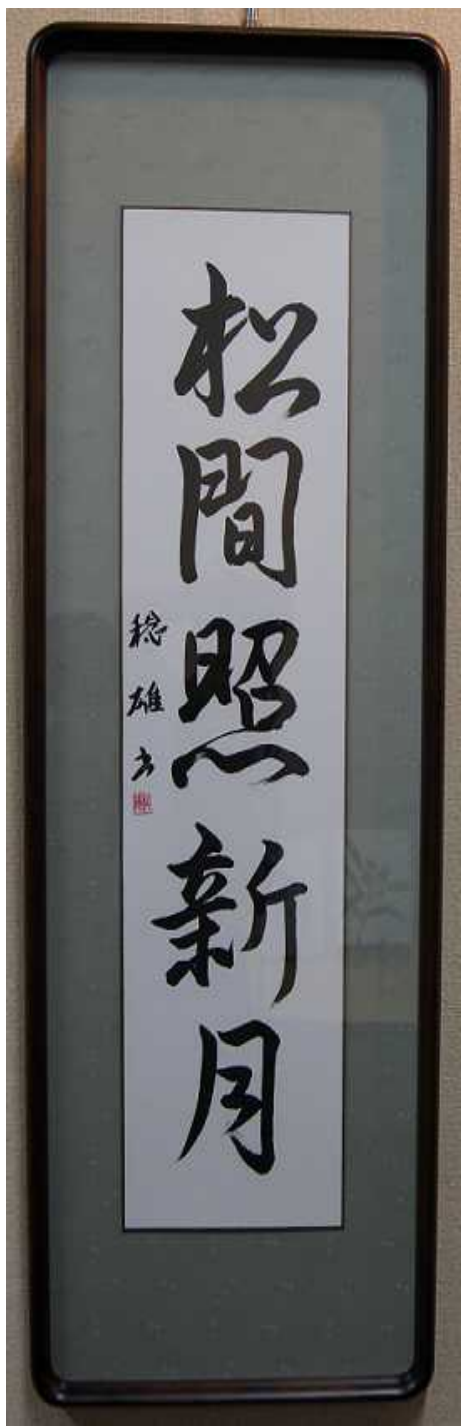 松間照新月
稔雄書